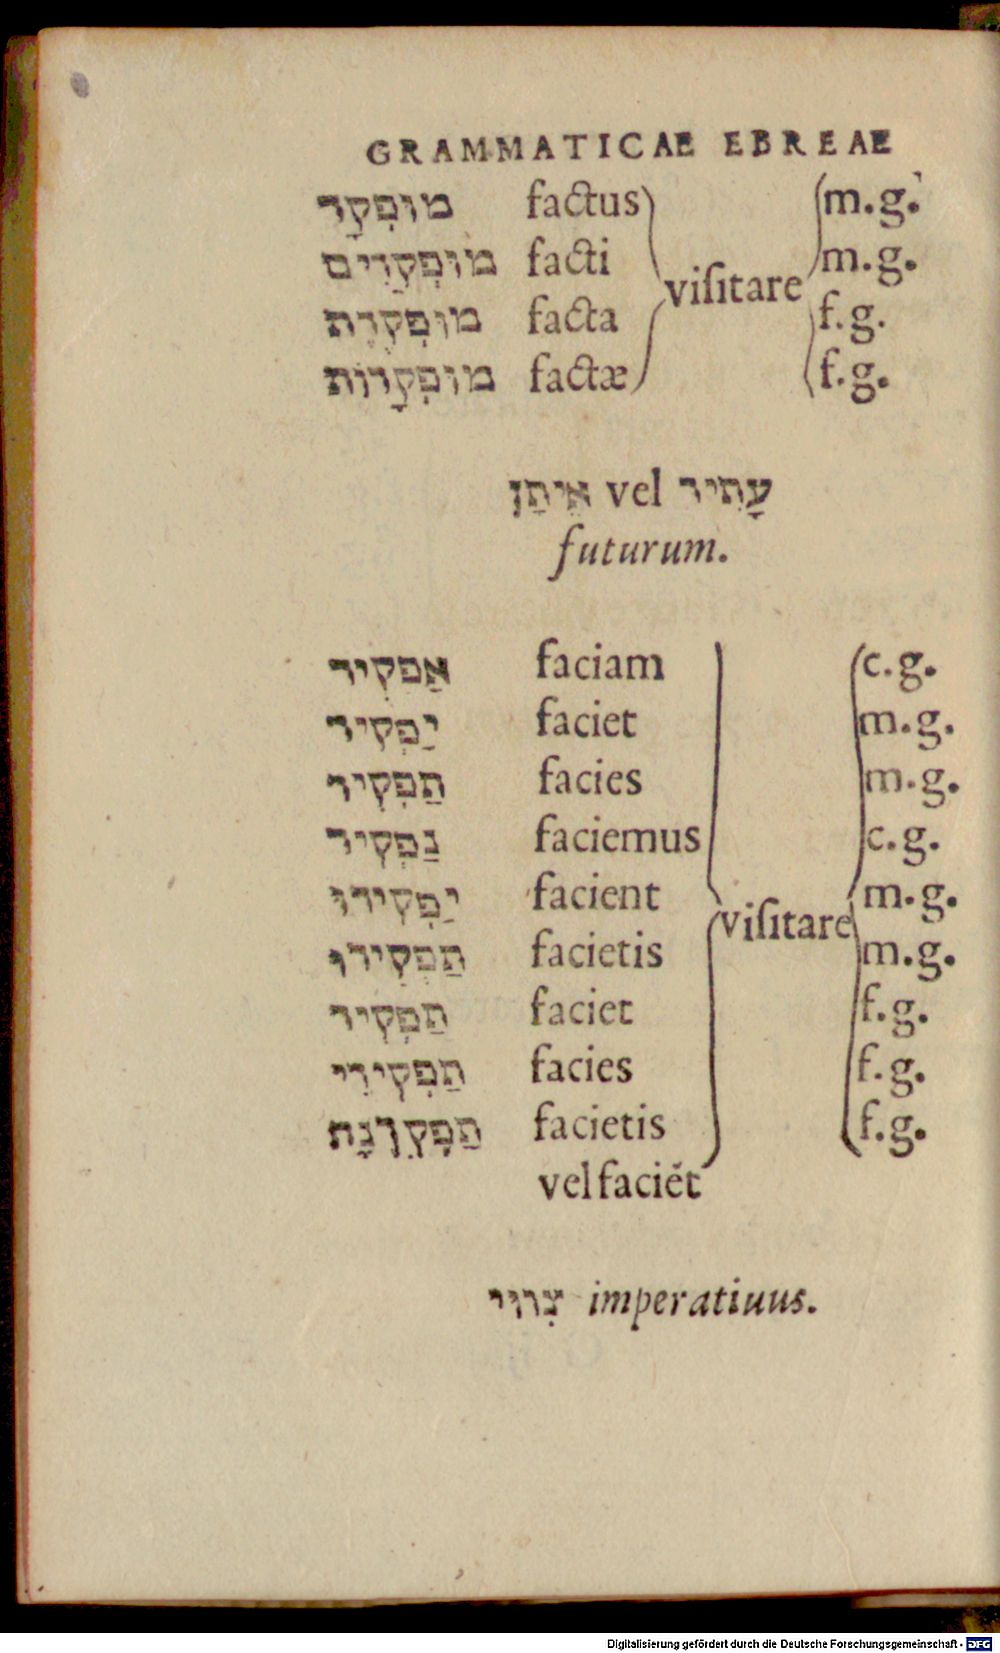 GRAMMATICAE EBREAE
מוּפְקָד factus m.g.
מוּפְקָדִים facti m.g.
viſitare
מוּפְקֶדֶת facta f.g.
מוּפְקָדוֹת factæ f.g.
עָתִיד vel אֵיתָן
futurum.
אַפְקִיד faciam c.g.
יַפְקִיד faciet m.g.
תַּפְקִיד facies m.g.
נַפְקִיד faciemus c.g.
יַפְקִידוּ facient m.g.
viſitare
תַּפְקִידוּ facietis m.g.
תַּפְקִיד faciet f.g.
תַּפְקִידִי facies f.g.
תַּפְקֵדְנָה facietis f.g.
vel faciēt
צִוּוּי imperatiuus.
Digitalisierung gefördert durch die Deutsche Forschungsgemeinschaft - DFG